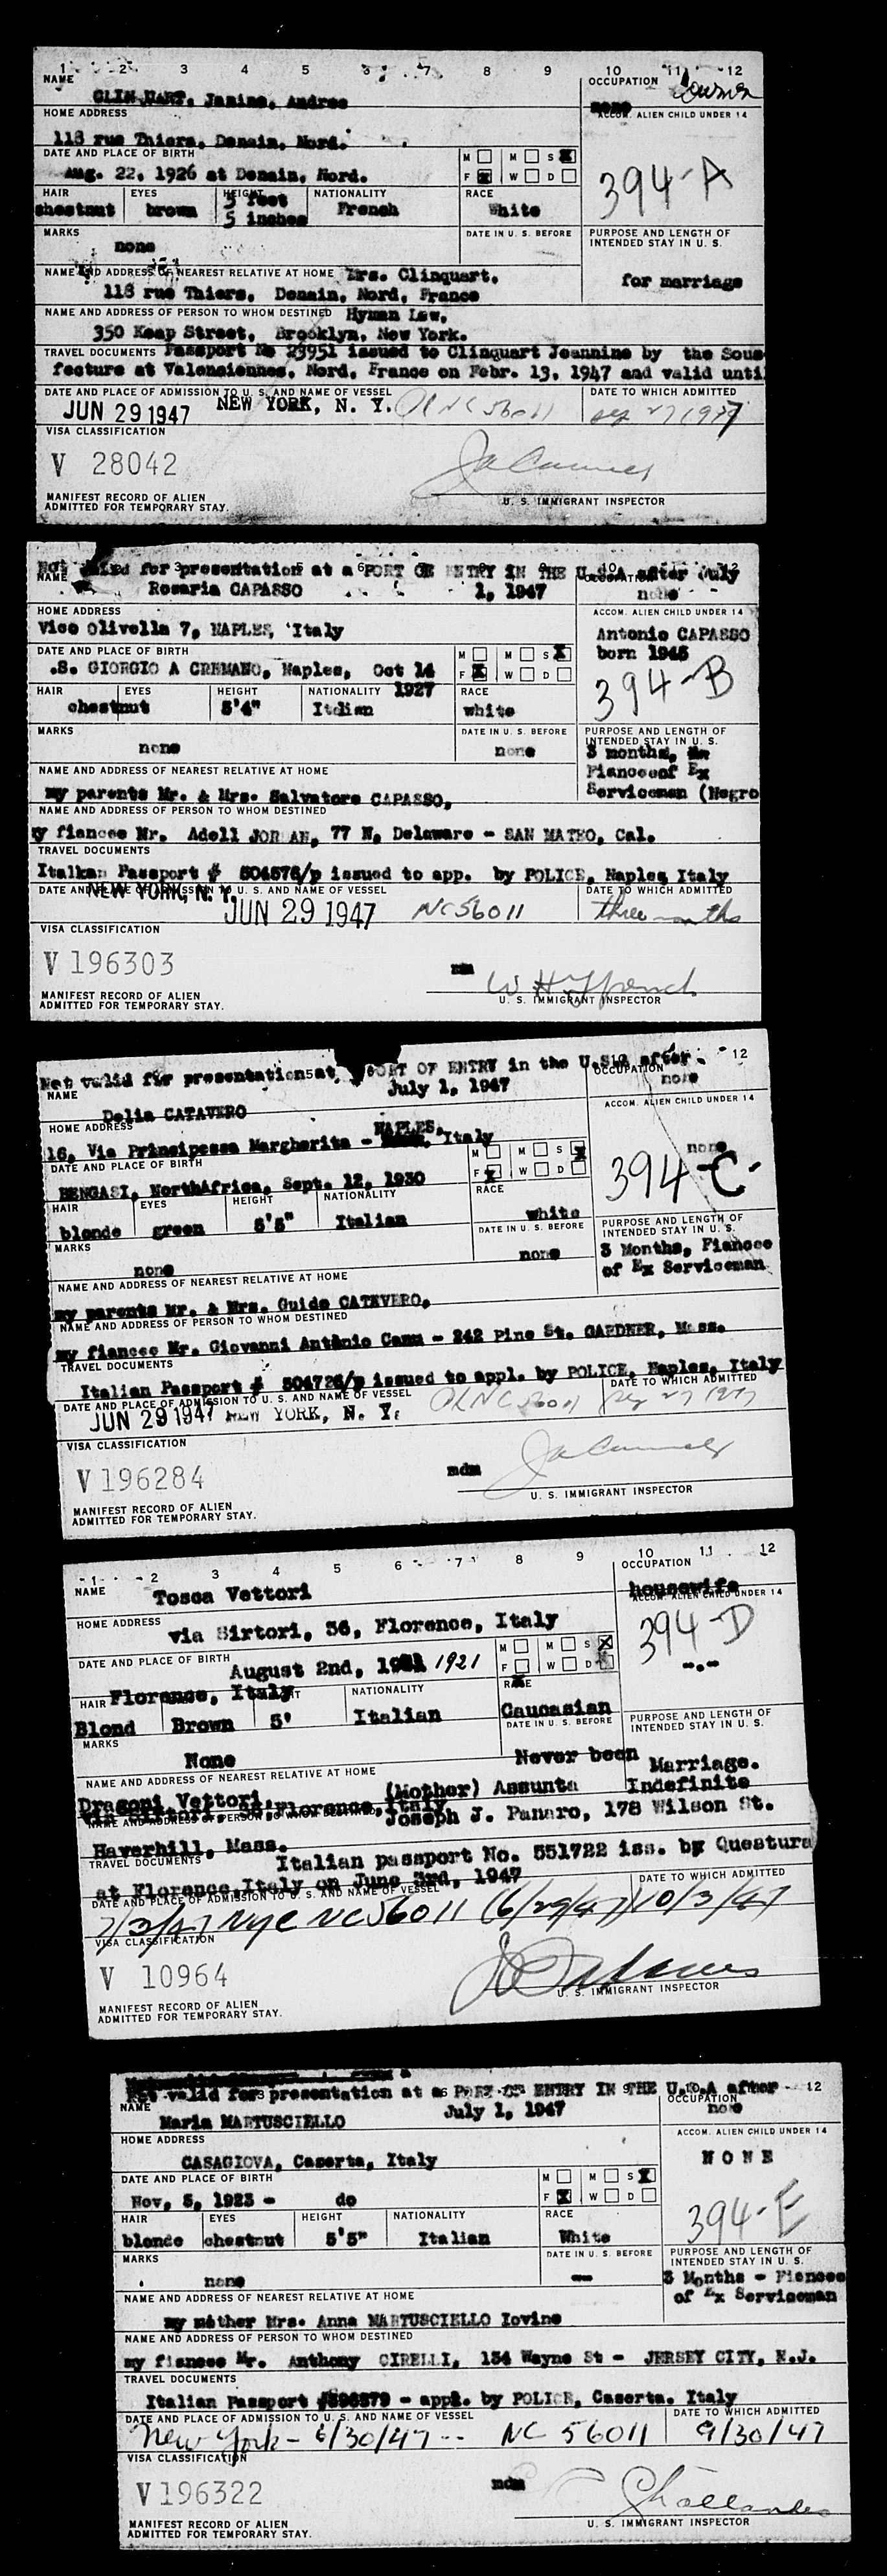 1 2 3 4 5 6 7 8 9 10 11 12
NAME
OCCUPATION
CLINQUART, Janine, Andree
none
HOME ADDRESS
ACCOM. ALIEN CHILD UNDER 14
118 rue Thiers, Denain, Nord.
DATE AND PLACE OF BIRTH
M M S X
Aug. 22, 1926 at Denain, Nord.
F X W D
394-A
HAIR EYES HEIGHT NATIONALITY RACE
chestnut brown 5 feet 5 inches French White
MARKS
DATE IN U. S. BEFORE
PURPOSE AND LENGTH OF INTENDED STAY IN U. S.
none
NAME AND ADDRESS OF NEAREST RELATIVE AT HOME Mrs. Clinquart,
for marriage
118 rue Thiers, Denain, Nord, France
NAME AND ADDRESS OF PERSON TO WHOM DESTINED Hyman Law,
350 Keap Street, Brooklyn, New York.
TRAVEL DOCUMENTS Passport No 23951 issued to Clinquart Jeannine by the Sous
fecture at Valenciennes, Nord, France on Febr. 13, 1947 and valid until
DATE AND PLACE OF ADMISSION TO U. S. AND NAME OF VESSEL
DATE TO WHICH ADMITTED
JUN 29 1947 NEW YORK, N. Y. NC 56011 27 1947
VISA CLASSIFICATION
V 28042
MANIFEST RECORD OF ALIEN
ADMITTED FOR TEMPORARY STAY.
U. S. IMMIGRANT INSPECTOR
Not valid for presentation at a PORT OF ENTRY IN THE U.S.A after July
NAME
OCCUPATION
Rosaria CAPASSO 1, 1947 none
HOME ADDRESS
ACCOM. ALIEN CHILD UNDER 14
Vico Olivella 7, NAPLES, Italy
Antonio CAPASSO
DATE AND PLACE OF BIRTH
M M S X
born 1945
.S. GIORGIO A CREMANO, Naples, Oct 14
F X W D
394-B
HAIR EYES HEIGHT NATIONALITY 1927 RACE
chestnut 5'4" Italian white
MARKS
DATE IN U. S. BEFORE
PURPOSE AND LENGTH OF INTENDED STAY IN U. S.
none none
3 months,
NAME AND ADDRESS OF NEAREST RELATIVE AT HOME
Fianceeof Ex
my parents Mr. & Mrs. Salvatore CAPASSO,
Serviceman (Negro
NAME AND ADDRESS OF PERSON TO WHOM DESTINED
y fiancee Mr. Adell JORDAN, 77 N, Delaware - SAN MATEO, Cal.
TRAVEL DOCUMENTS
Italkan Passport # 504576/p issued to app. by POLICE, Naples Italy
DATE AND PLACE OF ADMISSION TO U. S. AND NAME OF VESSEL
DATE TO WHICH ADMITTED
NEW YORK, N. Y. JUN 29 1947 NC56011 three months
VISA CLASSIFICATION
V 196303
mm
MANIFEST RECORD OF ALIEN
ADMITTED FOR TEMPORARY STAY.
U. S. IMMIGRANT INSPECTOR
Not valid for presentation at PORT OF ENTRY in the U.S. after 12
NAME
July 1, 1947
OCCUPATION
none
Delia CATAVERO
HOME ADDRESS
ACCOM. ALIEN CHILD UNDER 14
NAPLES,
16, Via Principessa Margherita - Italy
none
DATE AND PLACE OF BIRTH
M M S X
BENGASI, NorthAfrica, Sept. 12, 1930
F X W D
394-C.
HAIR EYES HEIGHT NATIONALITY RACE
blonde green 5'5" Italian white
MARKS
DATE IN U. S. BEFORE
PURPOSE AND LENGTH OF INTENDED STAY IN U. S.
none none
3 Months, Fiancee
of Ex Serviceman
NAME AND ADDRESS OF NEAREST RELATIVE AT HOME
my parents Mr. & Mrs. Guido CATAVERO,
NAME AND ADDRESS OF PERSON TO WHOM DESTINED
my fiancee Mr. Giovanni Antonio Camu - 242 Pine St. GARDNER, Mass.
TRAVEL DOCUMENTS
Italian Passport # 504726/p issued to appl. by POLICE, Naples, Italy
DATE AND PLACE OF ADMISSION TO U. S. AND NAME OF VESSEL
DATE TO WHICH ADMITTED
JUN 29 1947 NEW YORK, N. Y. NC 56011 27 1947
VISA CLASSIFICATION
V 196284
mdm
MANIFEST RECORD OF ALIEN
ADMITTED FOR TEMPORARY STAY.
U. S. IMMIGRANT INSPECTOR
1 2 3 4 5 6 7 8 9 10 11 12
NAME
OCCUPATION
Tosca Vettori
housewife
HOME ADDRESS
ACCOM. ALIEN CHILD UNDER 14
via Sirtori, 56, Florence, Italy
394-D
DATE AND PLACE OF BIRTH
M M S X
August 2nd, 1921
F W D
-.-
Florence, Italy
HAIR NATIONALITY RACE
Blond Brown 5' Italian Caucasian
MARKS
DATE IN U. S. BEFORE
PURPOSE AND LENGTH OF INTENDED STAY IN U. S.
None Never been Marriage.
NAME AND ADDRESS OF NEAREST RELATIVE AT HOME
Indefinite
Dragoni Vettori, (Mother) Assunta
via Sirtori, 56, Florence, Italy
NAME AND ADDRESS OF PERSON TO WHOM DESTINED
Joseph J. Panaro, 178 Wilson St.
Haverhill, Mass.
TRAVEL DOCUMENTS
Italian passport No. 551722 iss. by Questura
at Florence, Italy on June 3rd, 1947
DATE AND PLACE OF ADMISSION TO U. S. AND NAME OF VESSEL
DATE TO WHICH ADMITTED
7/3/47 NYC NC56011 (6/29/47) 10/3/47
VISA CLASSIFICATION
V 10964
MANIFEST RECORD OF ALIEN
ADMITTED FOR TEMPORARY STAY.
U. S. IMMIGRANT INSPECTOR
Not valid for presentation at a PORT OF ENTRY IN THE U.S.A after 12
NAME
July 1, 1947
OCCUPATION
none
Maria MARTUSCIELLO
HOME ADDRESS
ACCOM. ALIEN CHILD UNDER 14
CASAGIOVA, Caserta, Italy
NONE
DATE AND PLACE OF BIRTH
M M S X
Nov, 5, 1923 - do
F X W D
394-E
HAIR EYES HEIGHT NATIONALITY RACE
blonde chestnut 5'5" Italian White
MARKS
DATE IN U. S. BEFORE
PURPOSE AND LENGTH OF INTENDED STAY IN U. S.
none -
3 Months - Fiancee
of Ex Serviceman
NAME AND ADDRESS OF NEAREST RELATIVE AT HOME
my mother Mrs. Anna MARTUSCIELLO Iovine
NAME AND ADDRESS OF PERSON TO WHOM DESTINED
my fiancee Mr. Anthony CIRELLI, 154 Wayne St - JERSEY CITY, N.J.
TRAVEL DOCUMENTS
Italian Passport #596379 - appl. by POLICE, Caserta. Italy
DATE AND PLACE OF ADMISSION TO U. S. AND NAME OF VESSEL
DATE TO WHICH ADMITTED
New York - 6/30/47 -- NC 56011 9/30/47
VISA CLASSIFICATION
V 196322
mdm
MANIFEST RECORD OF ALIEN
ADMITTED FOR TEMPORARY STAY.
U. S. IMMIGRANT INSPECTOR